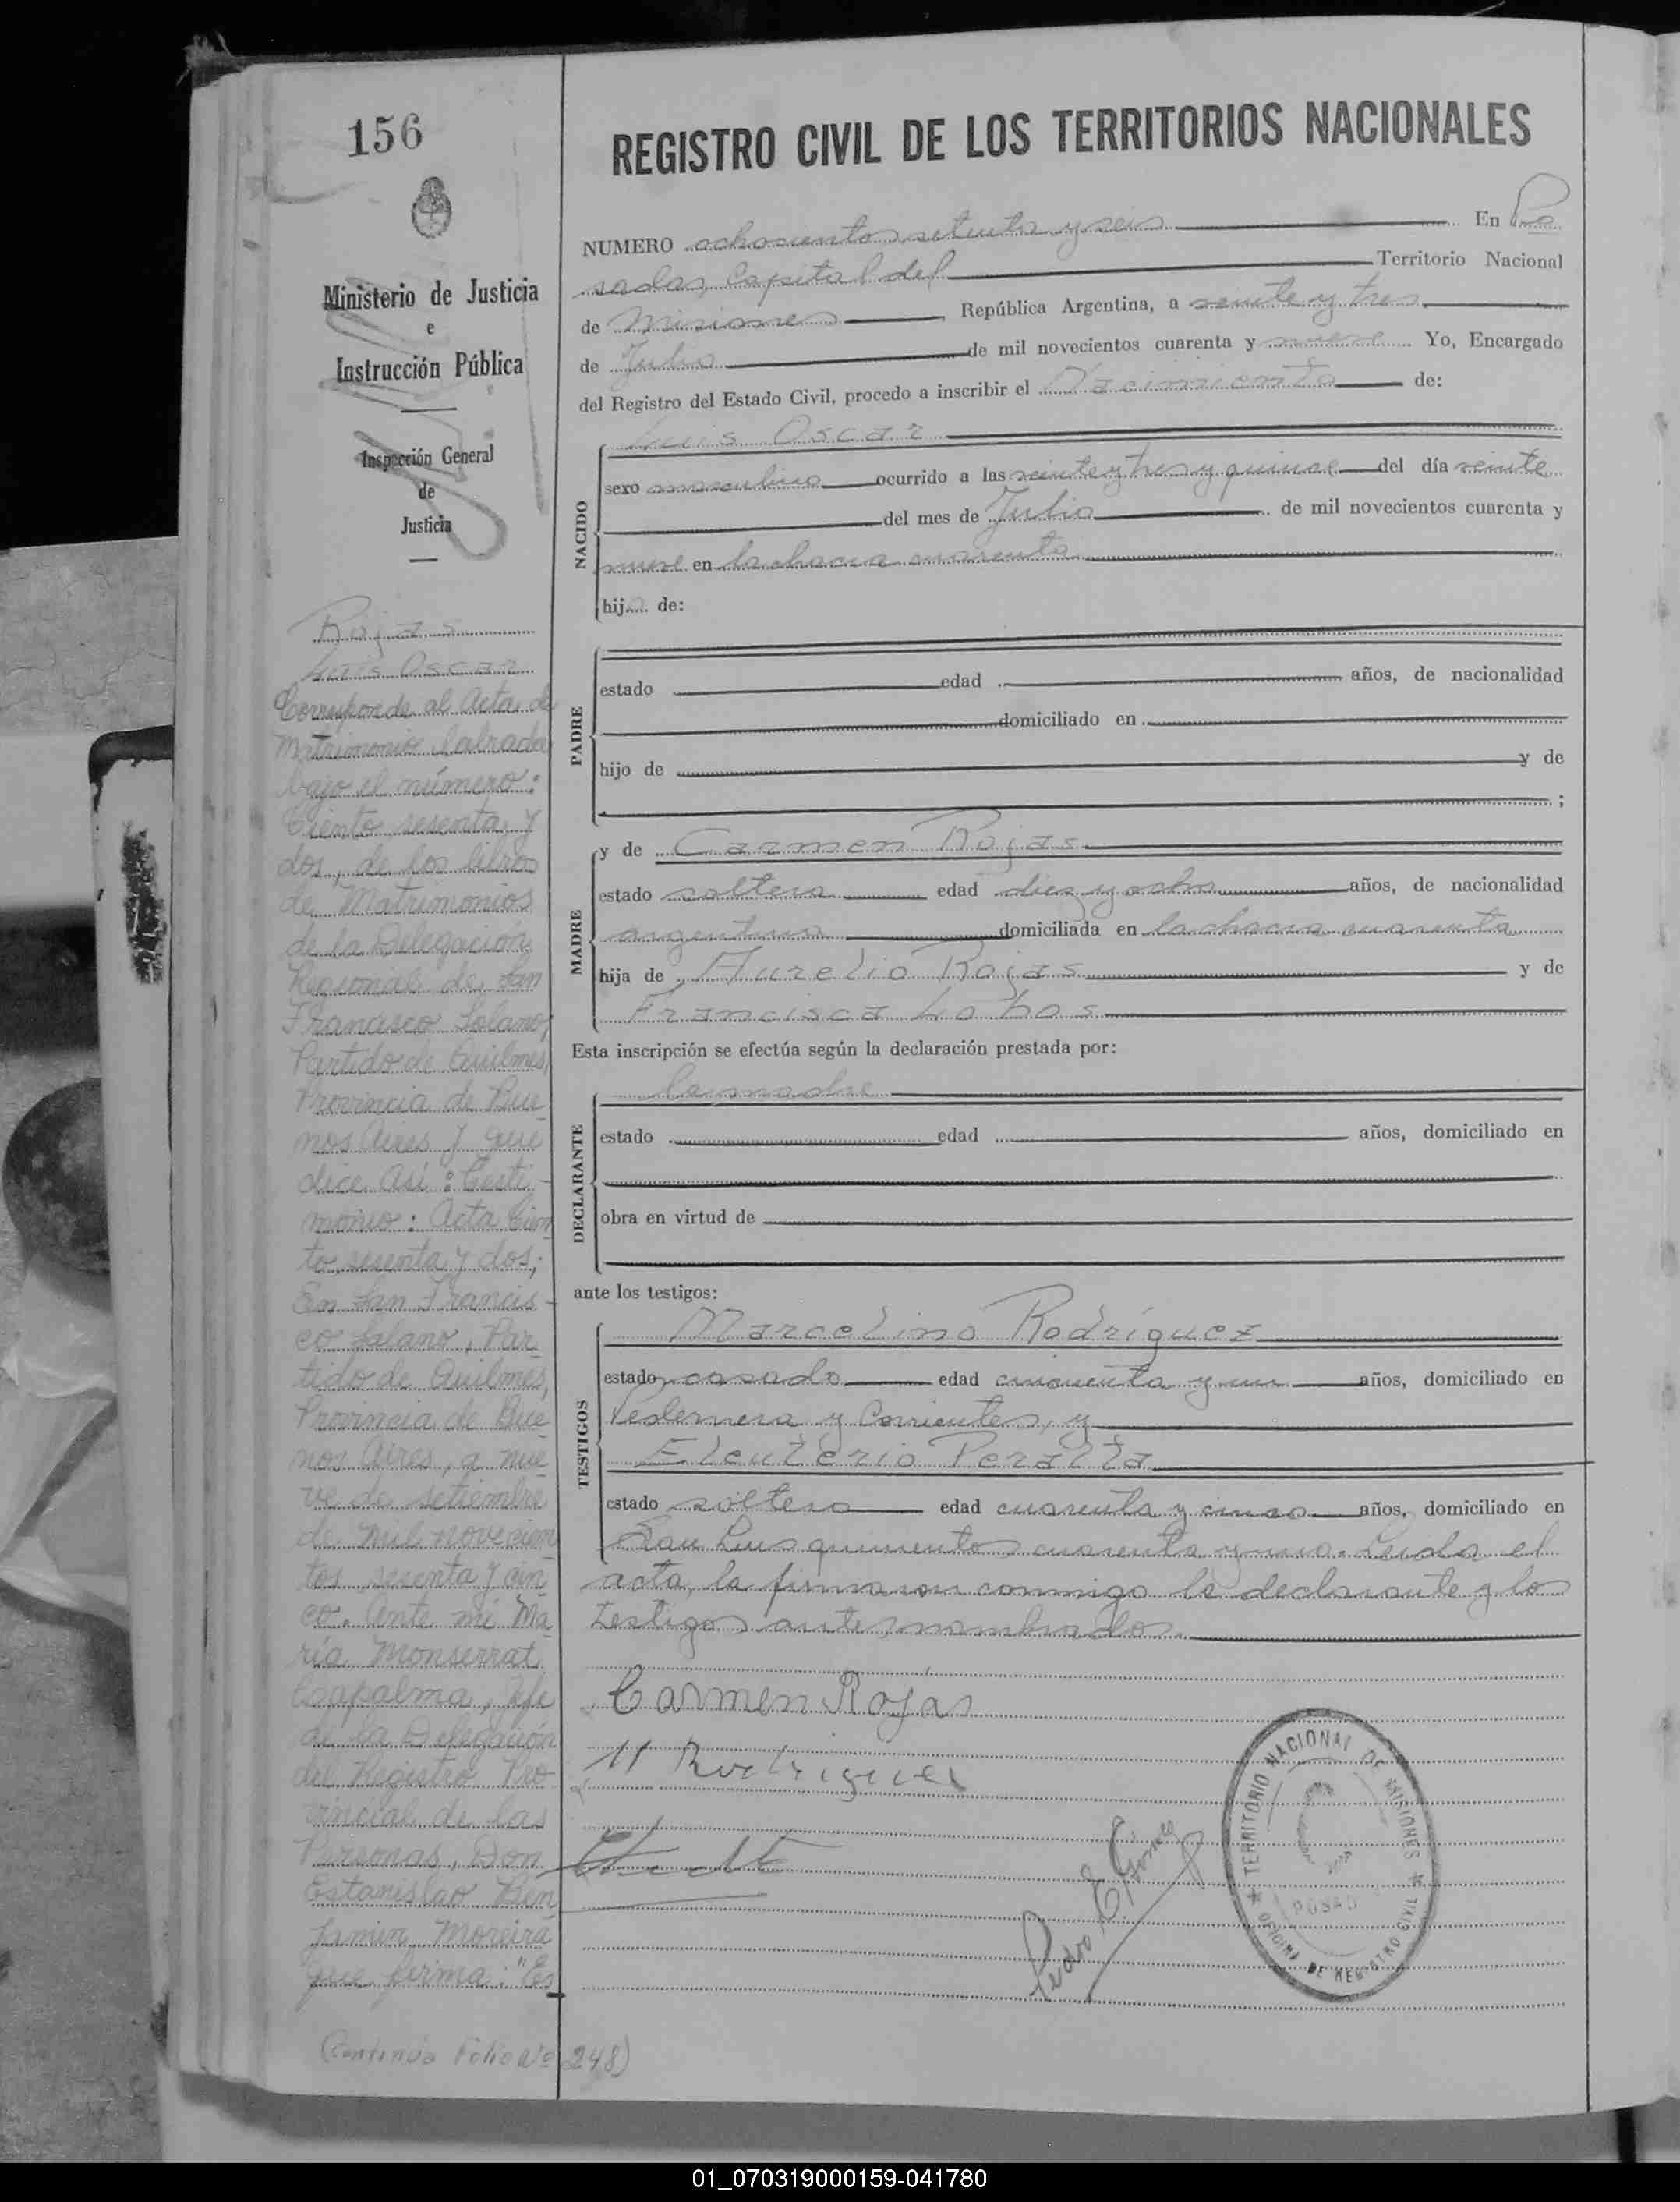 156
Ministerio de Justicia
e
Instrucción Pública
Inspección General
de
Justicia
Rojas
Luis Oscar
Corresponde al Acta de
Matrimonio labrada
bajo el número:
Ciento sesenta y
dos, de los libros
de Matrimonios
de la Delegación
Regional de San
Francisco Solano,
Partido de Quilmes,
Provincia de Bue
nos Aires y que
dice así: Testi-
monio: Acta Cien
to sesenta y dos;
En San Francis-
co Solano, Par
tido de Quilmes,
Provincia de Bue
nos Aires, a nue
ve de setiembre
de mil novecien
tos sesenta y cin
co. Ante mí Ma
ría Monserrat
Capalma, Jefe
de la Delegación
del Registro Pro
vincial de las
Personas, Don
Estanislao Ben
jamin Moreira
que firma: "Es
(Continúa Folio Nº 248)
REGISTRO CIVIL DE LOS TERRITORIOS NACIONALES
NUMERO ochocientos setenta y seis En Po
sadas, Capital del Territorio Nacional
de Misiones, República Argentina, a veinte y tres
de Julio de mil novecientos cuarenta y nueve Yo, Encargado
del Registro del Estado Civil, procedo a inscribir el Nacimiento de:
NACIDO
Luis Oscar
sexo masculino ocurrido a las veinte y tres y quince del día veinte
del mes de Julio de mil novecientos cuarenta y
nueve en la chacra cuarenta
hijo de:
PADRE
estado edad años, de nacionalidad
domiciliado en
hijo de y de
;
MADRE
y de Carmen Rojas
estado soltera edad diez y ocho años, de nacionalidad
argentina domiciliada en la chacra cuarenta
hija de Aurelio Rojas y de
Francisca Lobos
Esta inscripción se efectúa según la declaración prestada por:
DECLARANTE
la madre
estado edad años, domiciliado en
obra en virtud de
ante los testigos:
TESTIGOS
Marcelino Rodríguez
estado casado edad cincuenta y un años, domiciliado en
Pedernera y Corrientes, y
Eleuterio Peralta
estado soltero edad cuarenta y cinco años, domiciliado en
San Luis quinientos cuarenta y uno. Leida el
acta, la firmaron conmigo la declarante y los
testigos antes nombrados.
Carmen Rojas
M Rodriguez
Pedro E. Gómez
TERRITORIO NACIONAL DE MISIONES
POSAD
OFICINA DE REGISTRO CIVIL
01_070319000159-041780